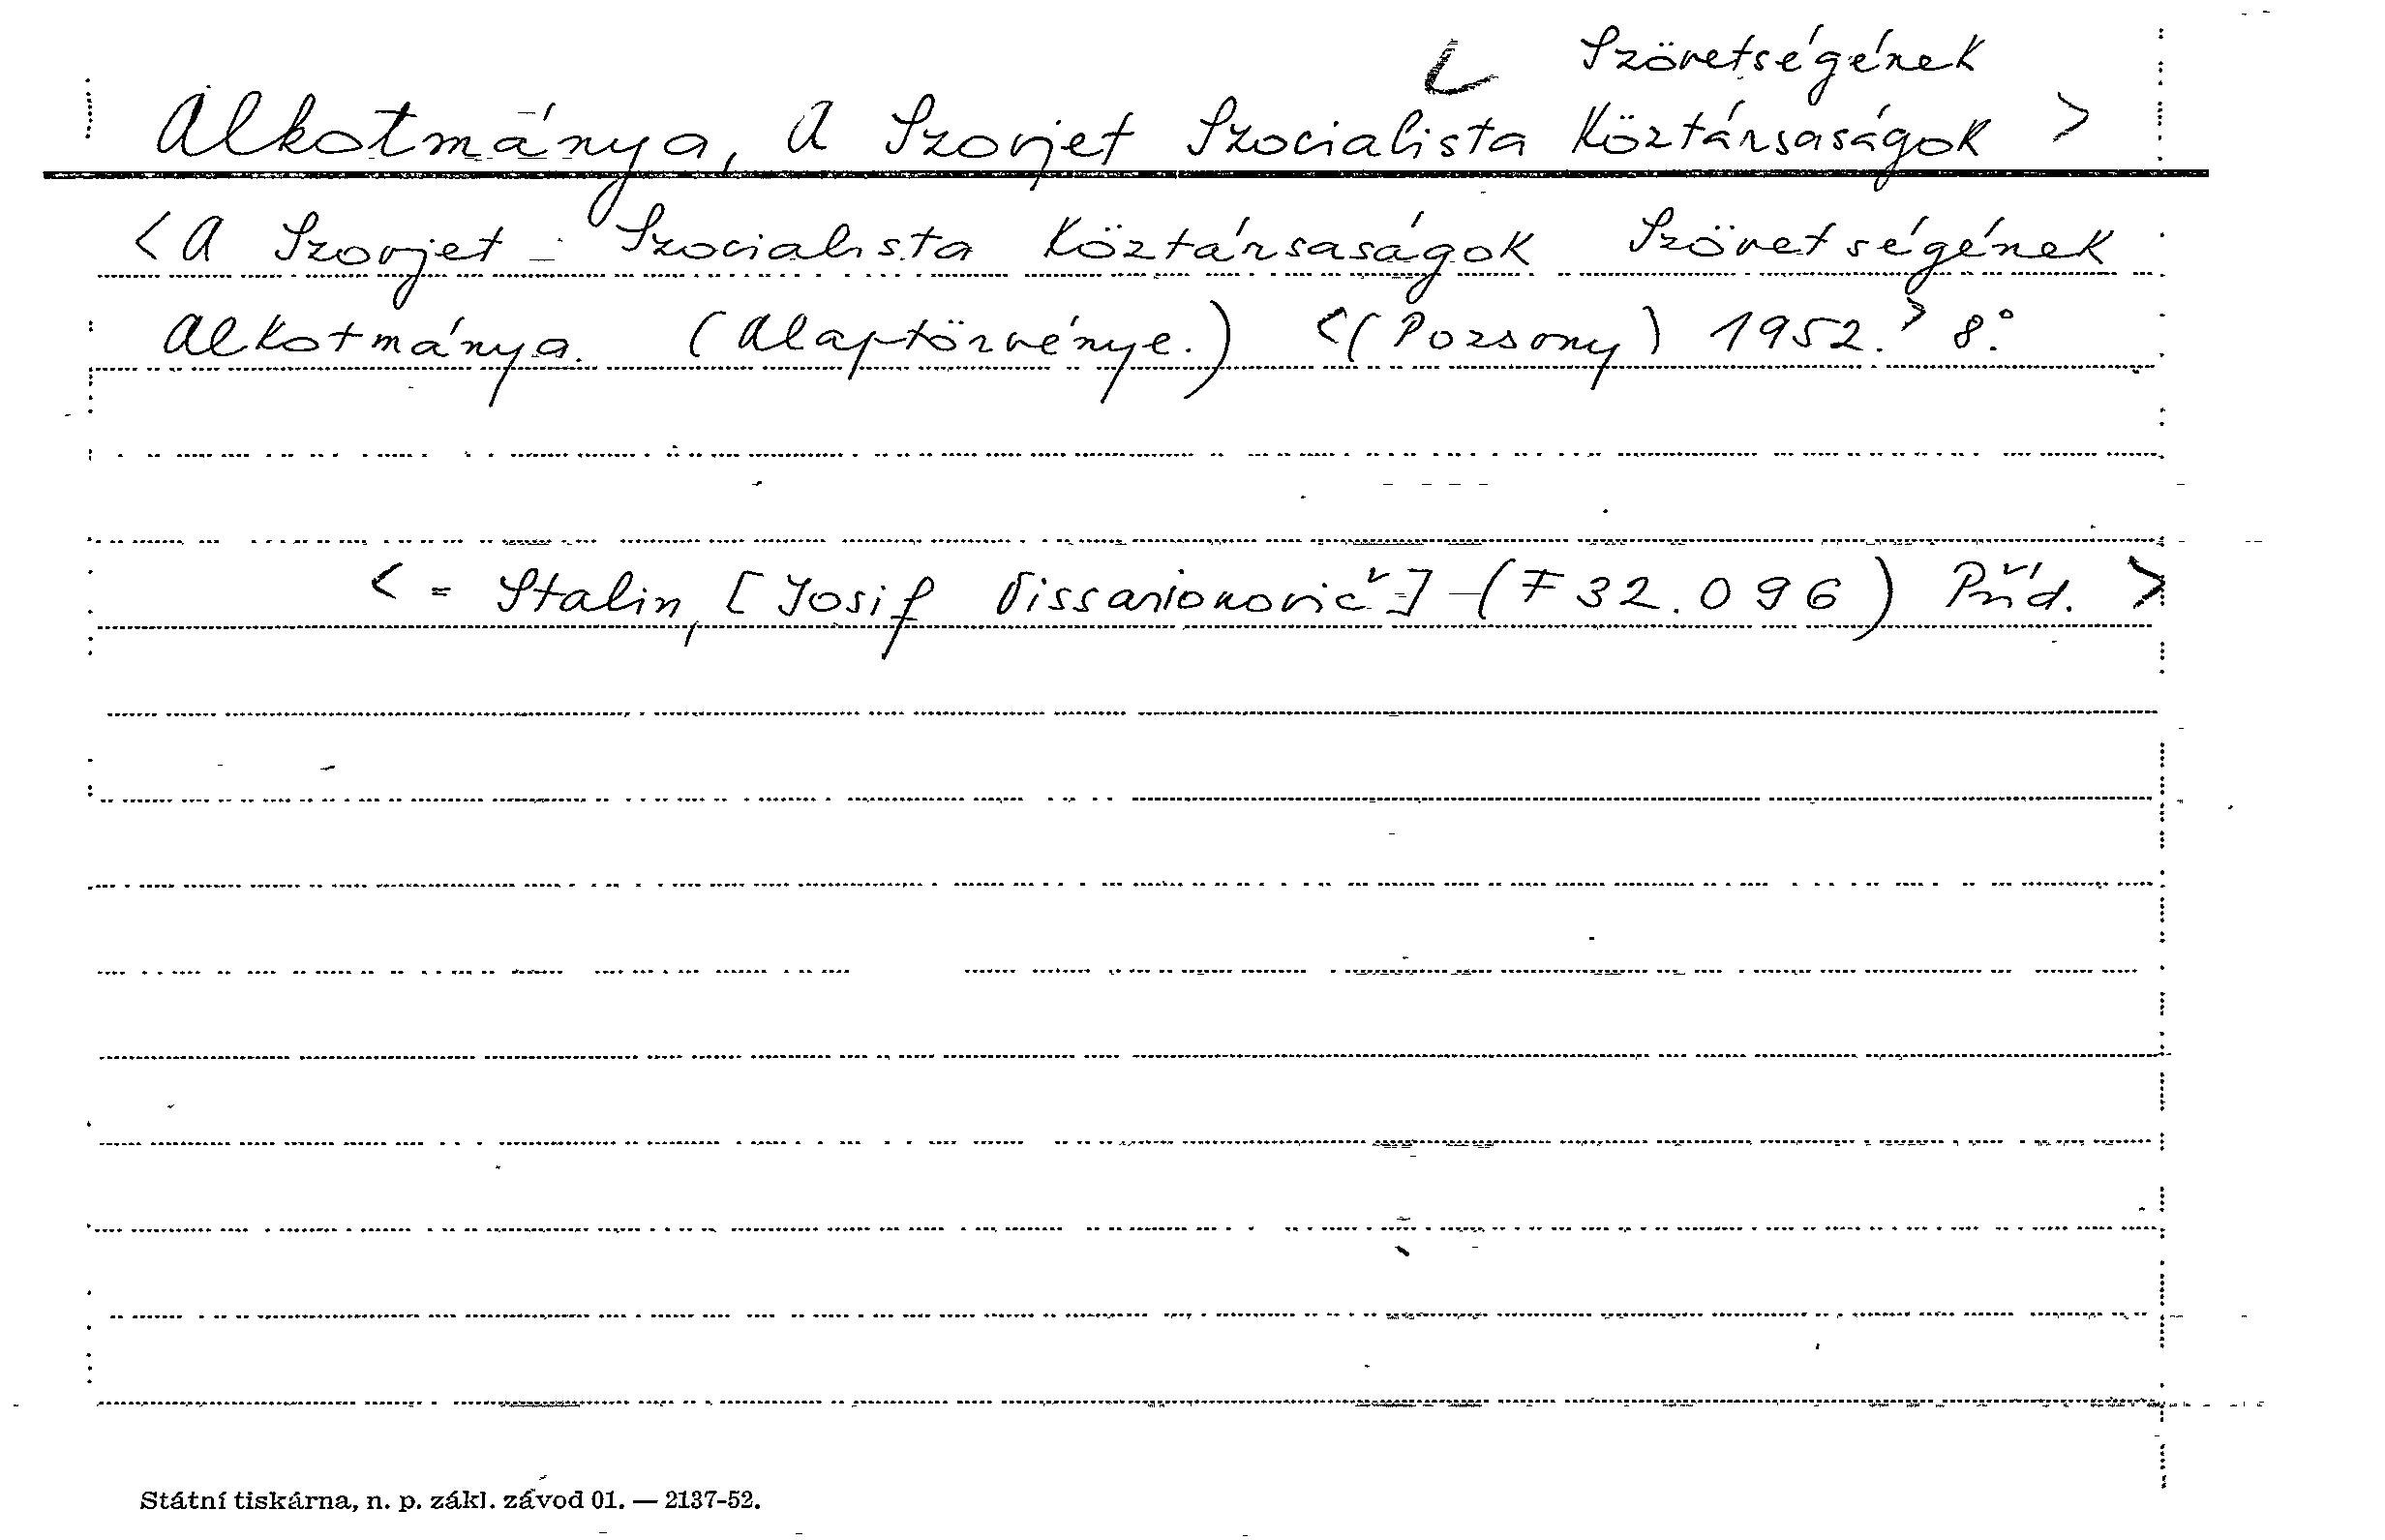 Szövetségének
Alkotmánya, A Szovjet Szocialista Köztársaságok >
<A Szovjet - Szocialista Köztársaságok Szövetségének
Alkotmánya. (Alaptörvénye.) <(Pozsony) 1952.> 8°.
< = Stalin, [Josif Vissarionovič] - (F 32.096) Příd. >
Státní tiskárna, n. p. zákl. závod 01. — 2137-52.